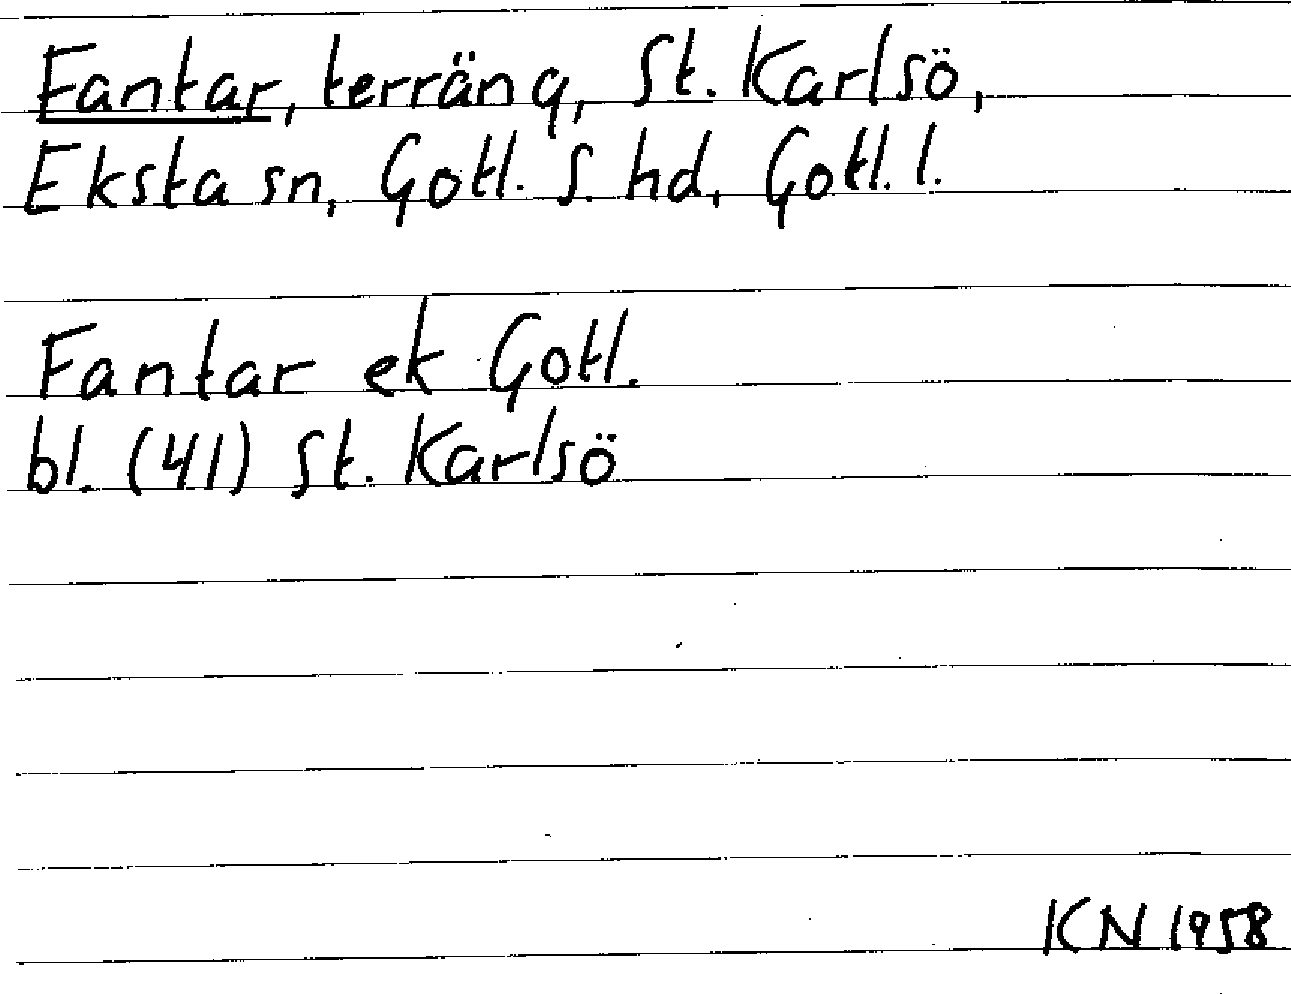 Fantar, terräng, St. Karlsö,
Eksta sn, Gotl. S. hd, Gotl. l.
Fantar ek Gotl.
bl. (41) St. Karlsö
KN 1958